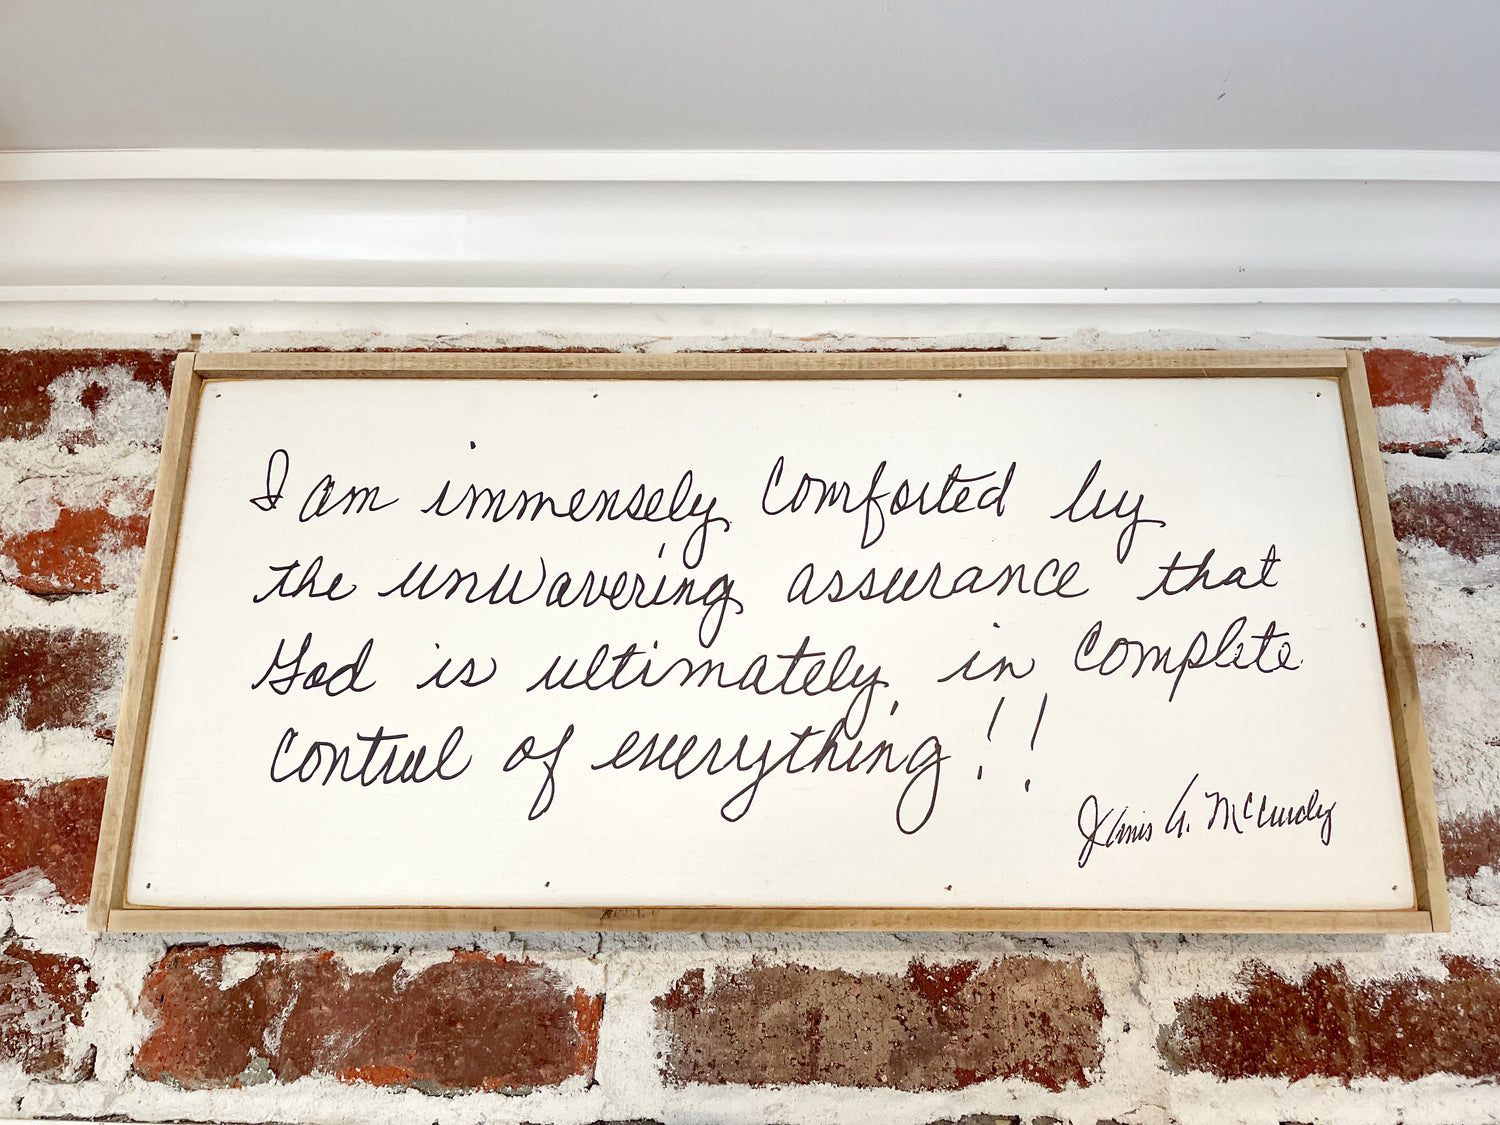 I am immensely comforted by
the unwavering assurance that
God is ultimately in complete
control of everything!!
Janis G. McCurdy